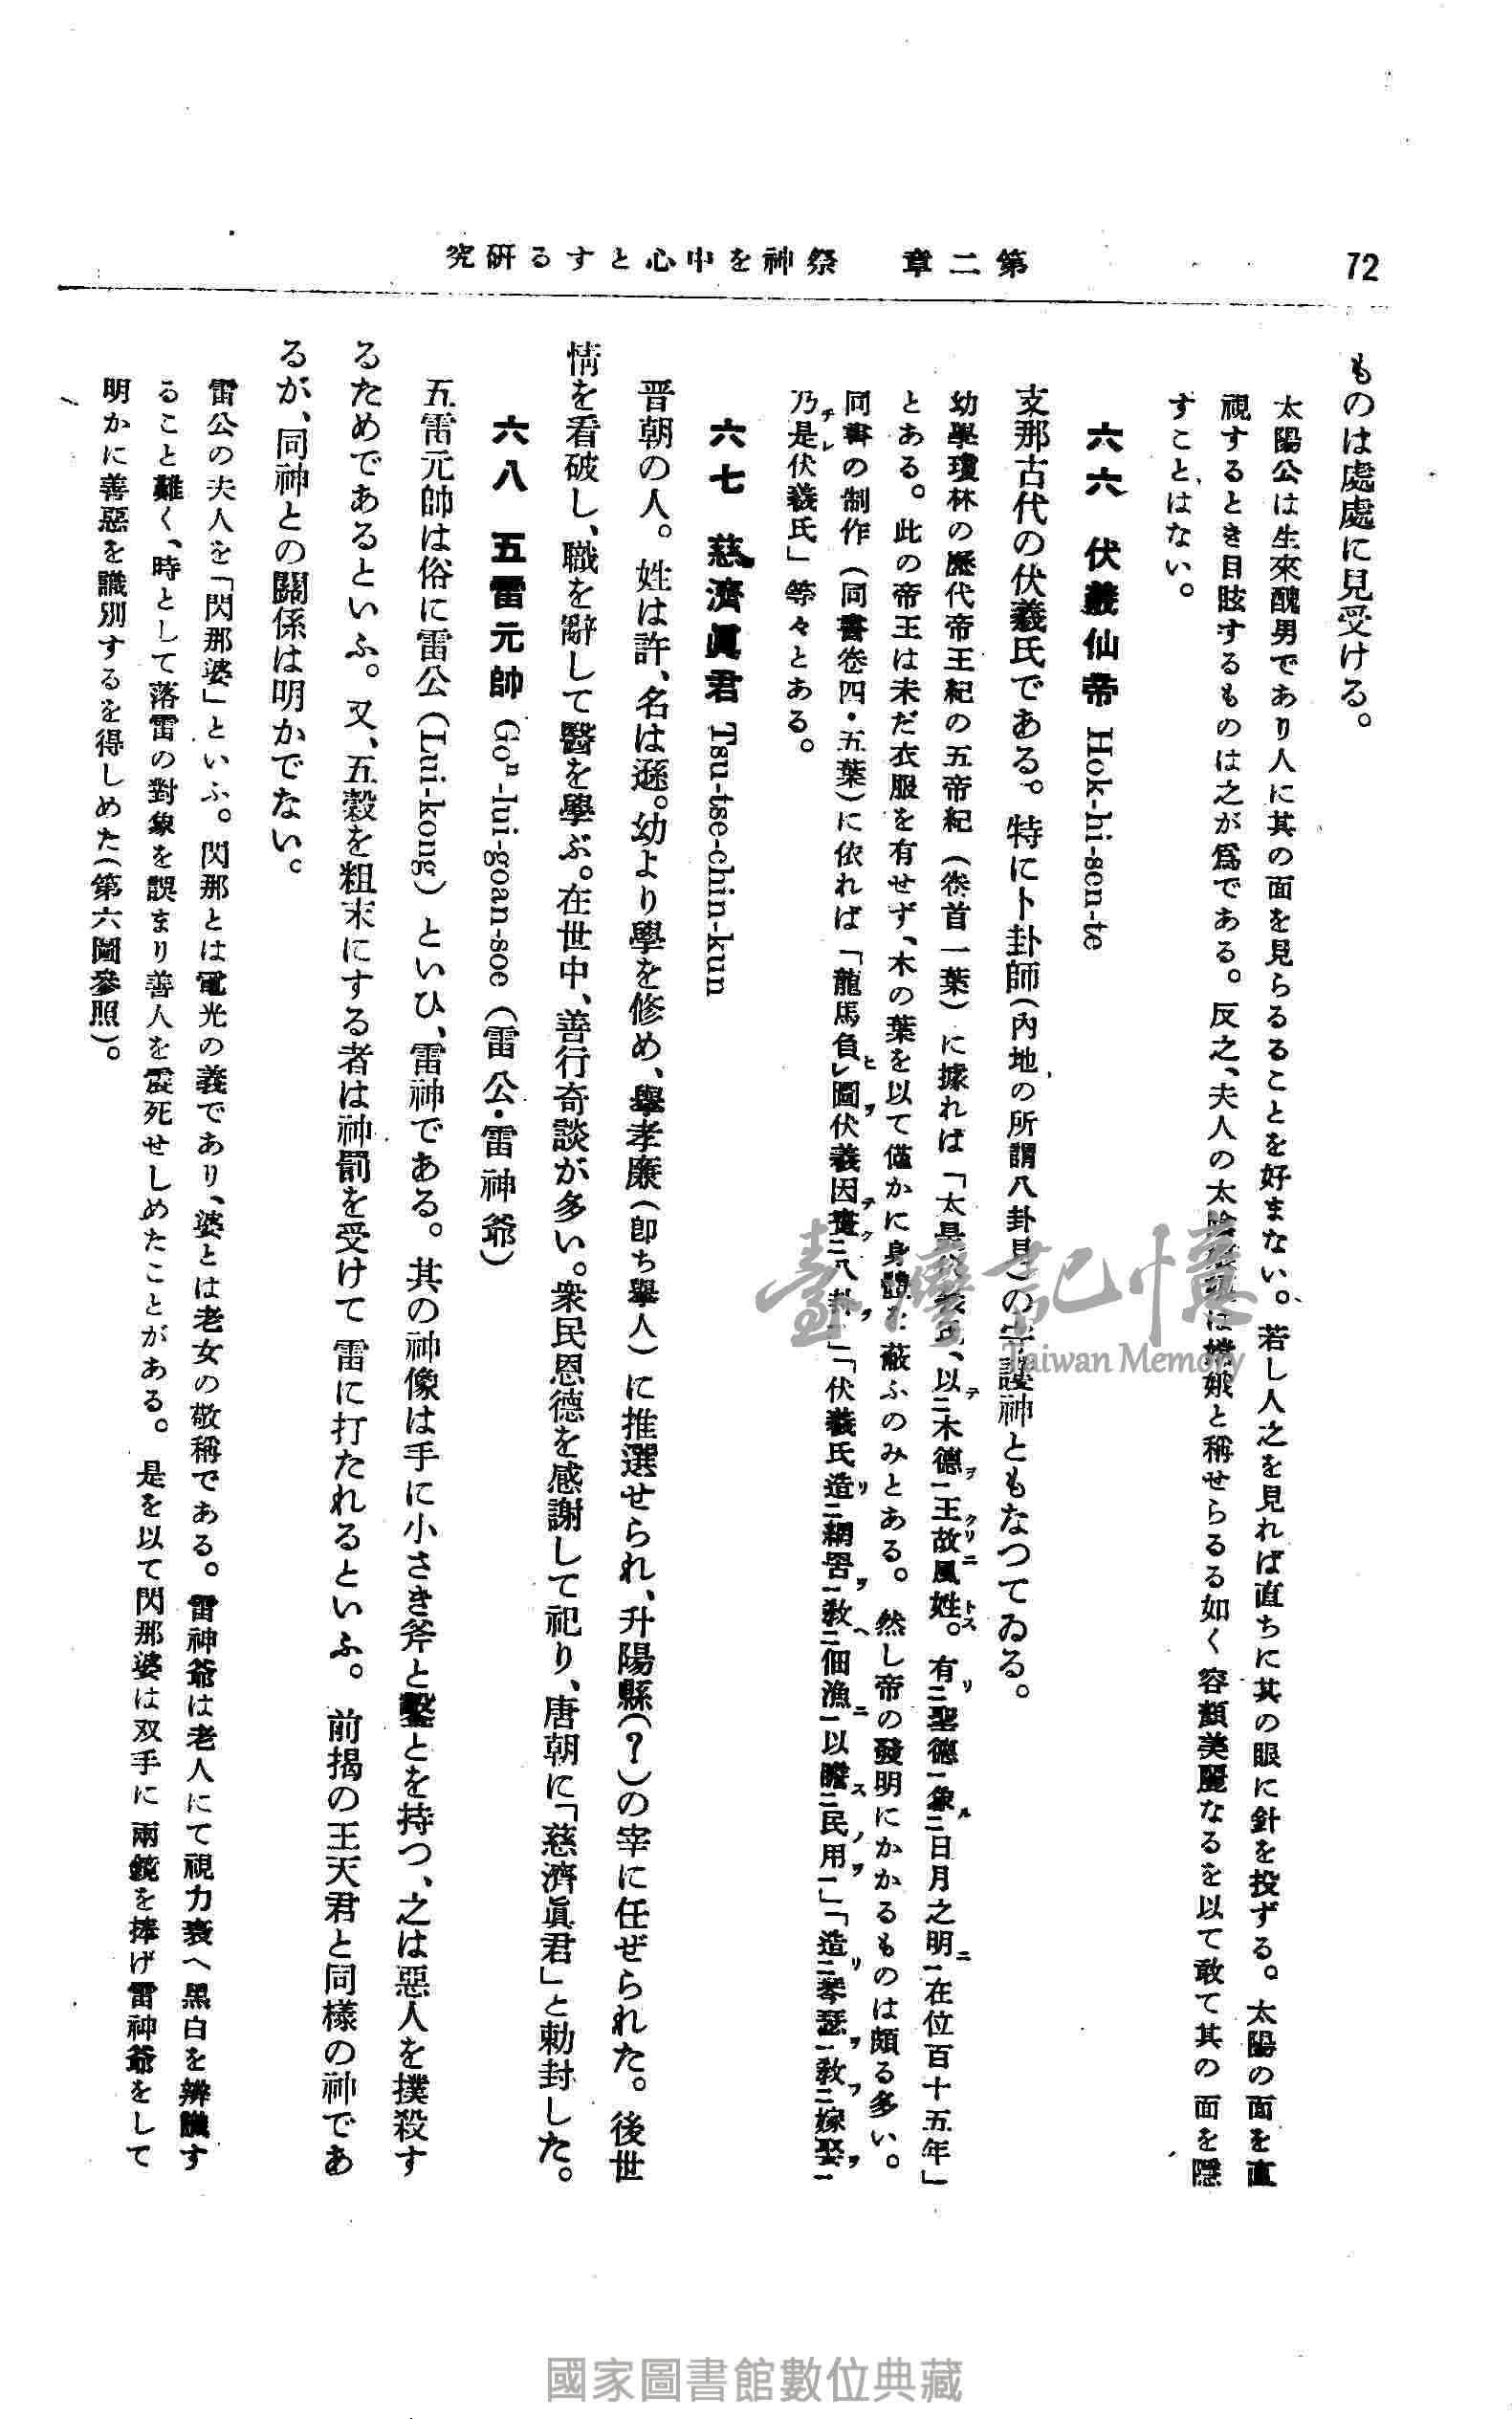 72
第二章　祭神を中心とする研究
ものは處處に見受ける。
太陽公は生來醜男であり人に其の面を見らるることを好まない。若し人之を見れば直ちに其の眼に針を投ずる。太陽の面を直
視するとき目眩するものは之が爲である。反之、夫人の太陰娘娘は嫦娥と稱せらるる如く容顏美麗なるを以て敢て其の面を隱
すことはない。
六六　伏羲仙帝 Hok-hi-sen-te
支那古代の伏羲氏である。特に卜卦師(內地の所謂八卦見)の守護神ともなつてゐる。
幼學瓊林の歷代帝王紀の五帝紀（卷首一葉）に據れば「太昊伏羲氏、以テ二木德ヲ一王故風姓。有リ二聖德一象ル二日月之明ニ一在位百十五年」
とある。此の帝王は未だ衣服を有せず、木の葉を以て僅かに身體を蔽ふのみとある。然し帝の發明にかかるものは頗る多い。
同書の制作（同書卷四・五葉）に依れば「龍馬負ヒレ圖ヲ伏羲因テ畫ク二八卦ヲ一」「伏羲氏造リ二網罟ヲ一敎ヘ二佃漁ニ一以瞻ス二民用ノヲ一」「造リ二琴瑟ヲ一敎フ二嫁娶ヲ一
乃チ是レ伏羲氏」等々とある。
六七　慈濟眞君 Tsu-tse-chin-kun
晋朝の人。姓は許、名は遜。幼より學を修め、擧孝廉(卽ち擧人）に推選せられ、升陽縣(？)の宰に任ぜられた。後世
情を看破し、職を辭して醫を學ぶ。在世中、善行奇談が多い。衆民恩德を感謝して祀り、唐朝に「慈濟眞君」と勅封した。
六八　五雷元帥 Goⁿ-lui-goan-soe（雷公・雷神爺）
五雷元帥は俗に雷公（Lui-kong）といひ、雷神である。其の神像は手に小さき斧と鑿とを持つ、之は惡人を撲殺す
るためであるといふ。又、五穀を粗末にする者は神罰を受けて雷に打たれるといふ。前揭の王天君と同樣の神であ
るが、同神との關係は明かでない。
雷公の夫人を「閃那婆」といふ。閃那とは電光の義であり、婆とは老女の敬稱である。雷神爺は老人にて視力衰へ黑白を辨識す
ること難く、時として落雷の對象を誤まり善人を震死せしめたことがある。是を以て閃那婆は双手に兩鏡を捧げ雷神爺をして
明かに善惡を識別するを得しめた(第六圖參照)。
臺灣記憶
Taiwan Memory
國家圖書館數位典藏